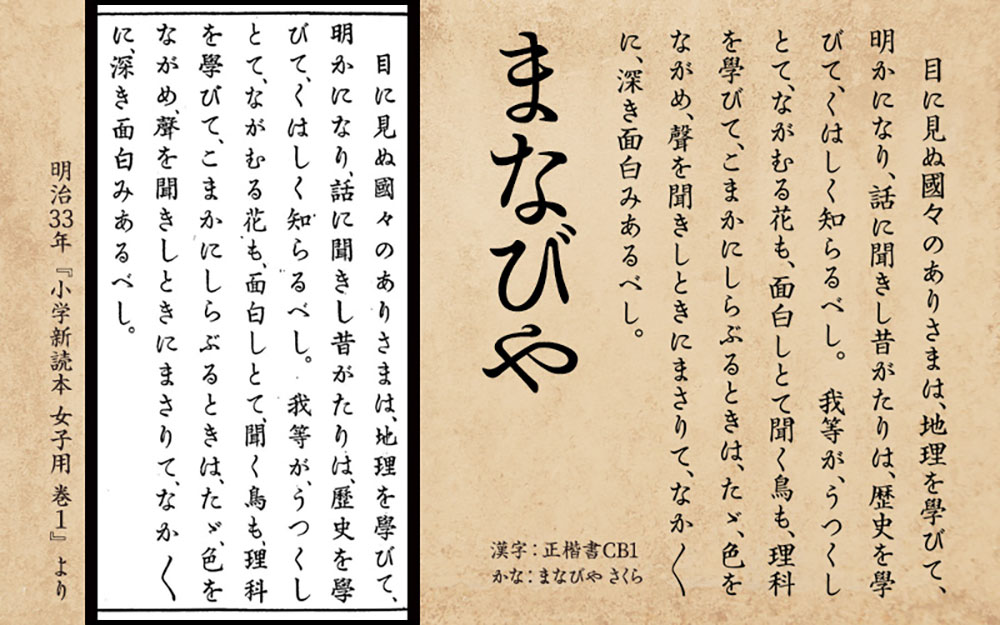 目に見ぬ國々のありさまは、地理を學びて、
明かになり、話に聞きし昔がたりは、歴史を學
びて、くはしく知らるべし。 我等が、うつくし
とて、ながむる花も、面白しとて聞く鳥も、理科
を學びて、こまかにしらぶるときは、たゞ、色を
ながめ、聲を聞きしときにまさりて、なか〱
に、深き面白みあるべし。
まなびや
漢字：正楷書CB1
かな：まなびや さくら
目に見ぬ國々のありさまは、地理を學びて、
明かになり、話に聞きし昔がたりは、歷史を學
びて、くはしく知らるべし。 我等が、うつくし
とて、ながむる花も、面白しとて、聞く鳥も、理科
を學びて、こまかにしらぶるときは、たゞ、色を
ながめ、聲を聞きしときにまさりて、なか〱
に、深き面白みあるべし。
明治33年『小学新読本 女子用 巻1』より